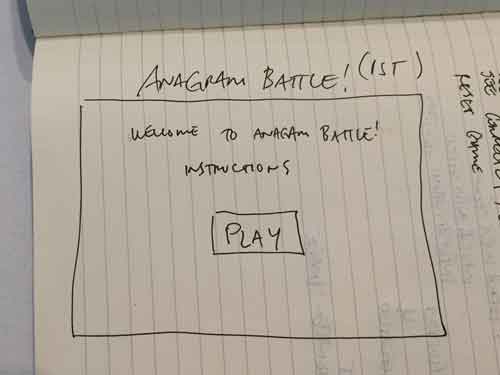 ANAGRAM BATTLE! (1ST)
WELCOME TO ANAGAM BATTLE!
INSTRUCTIONS
PLAY
RESET GAME